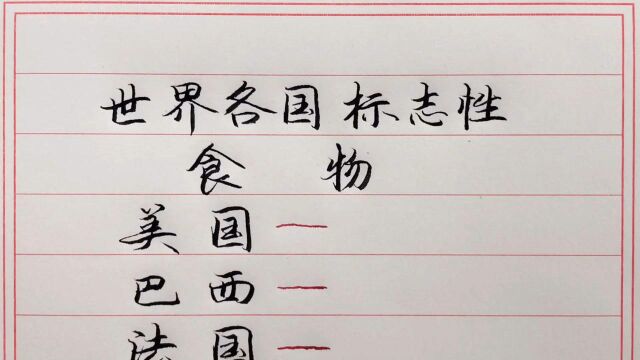 世界各国标志性
食物
美国—
巴西—
法国—